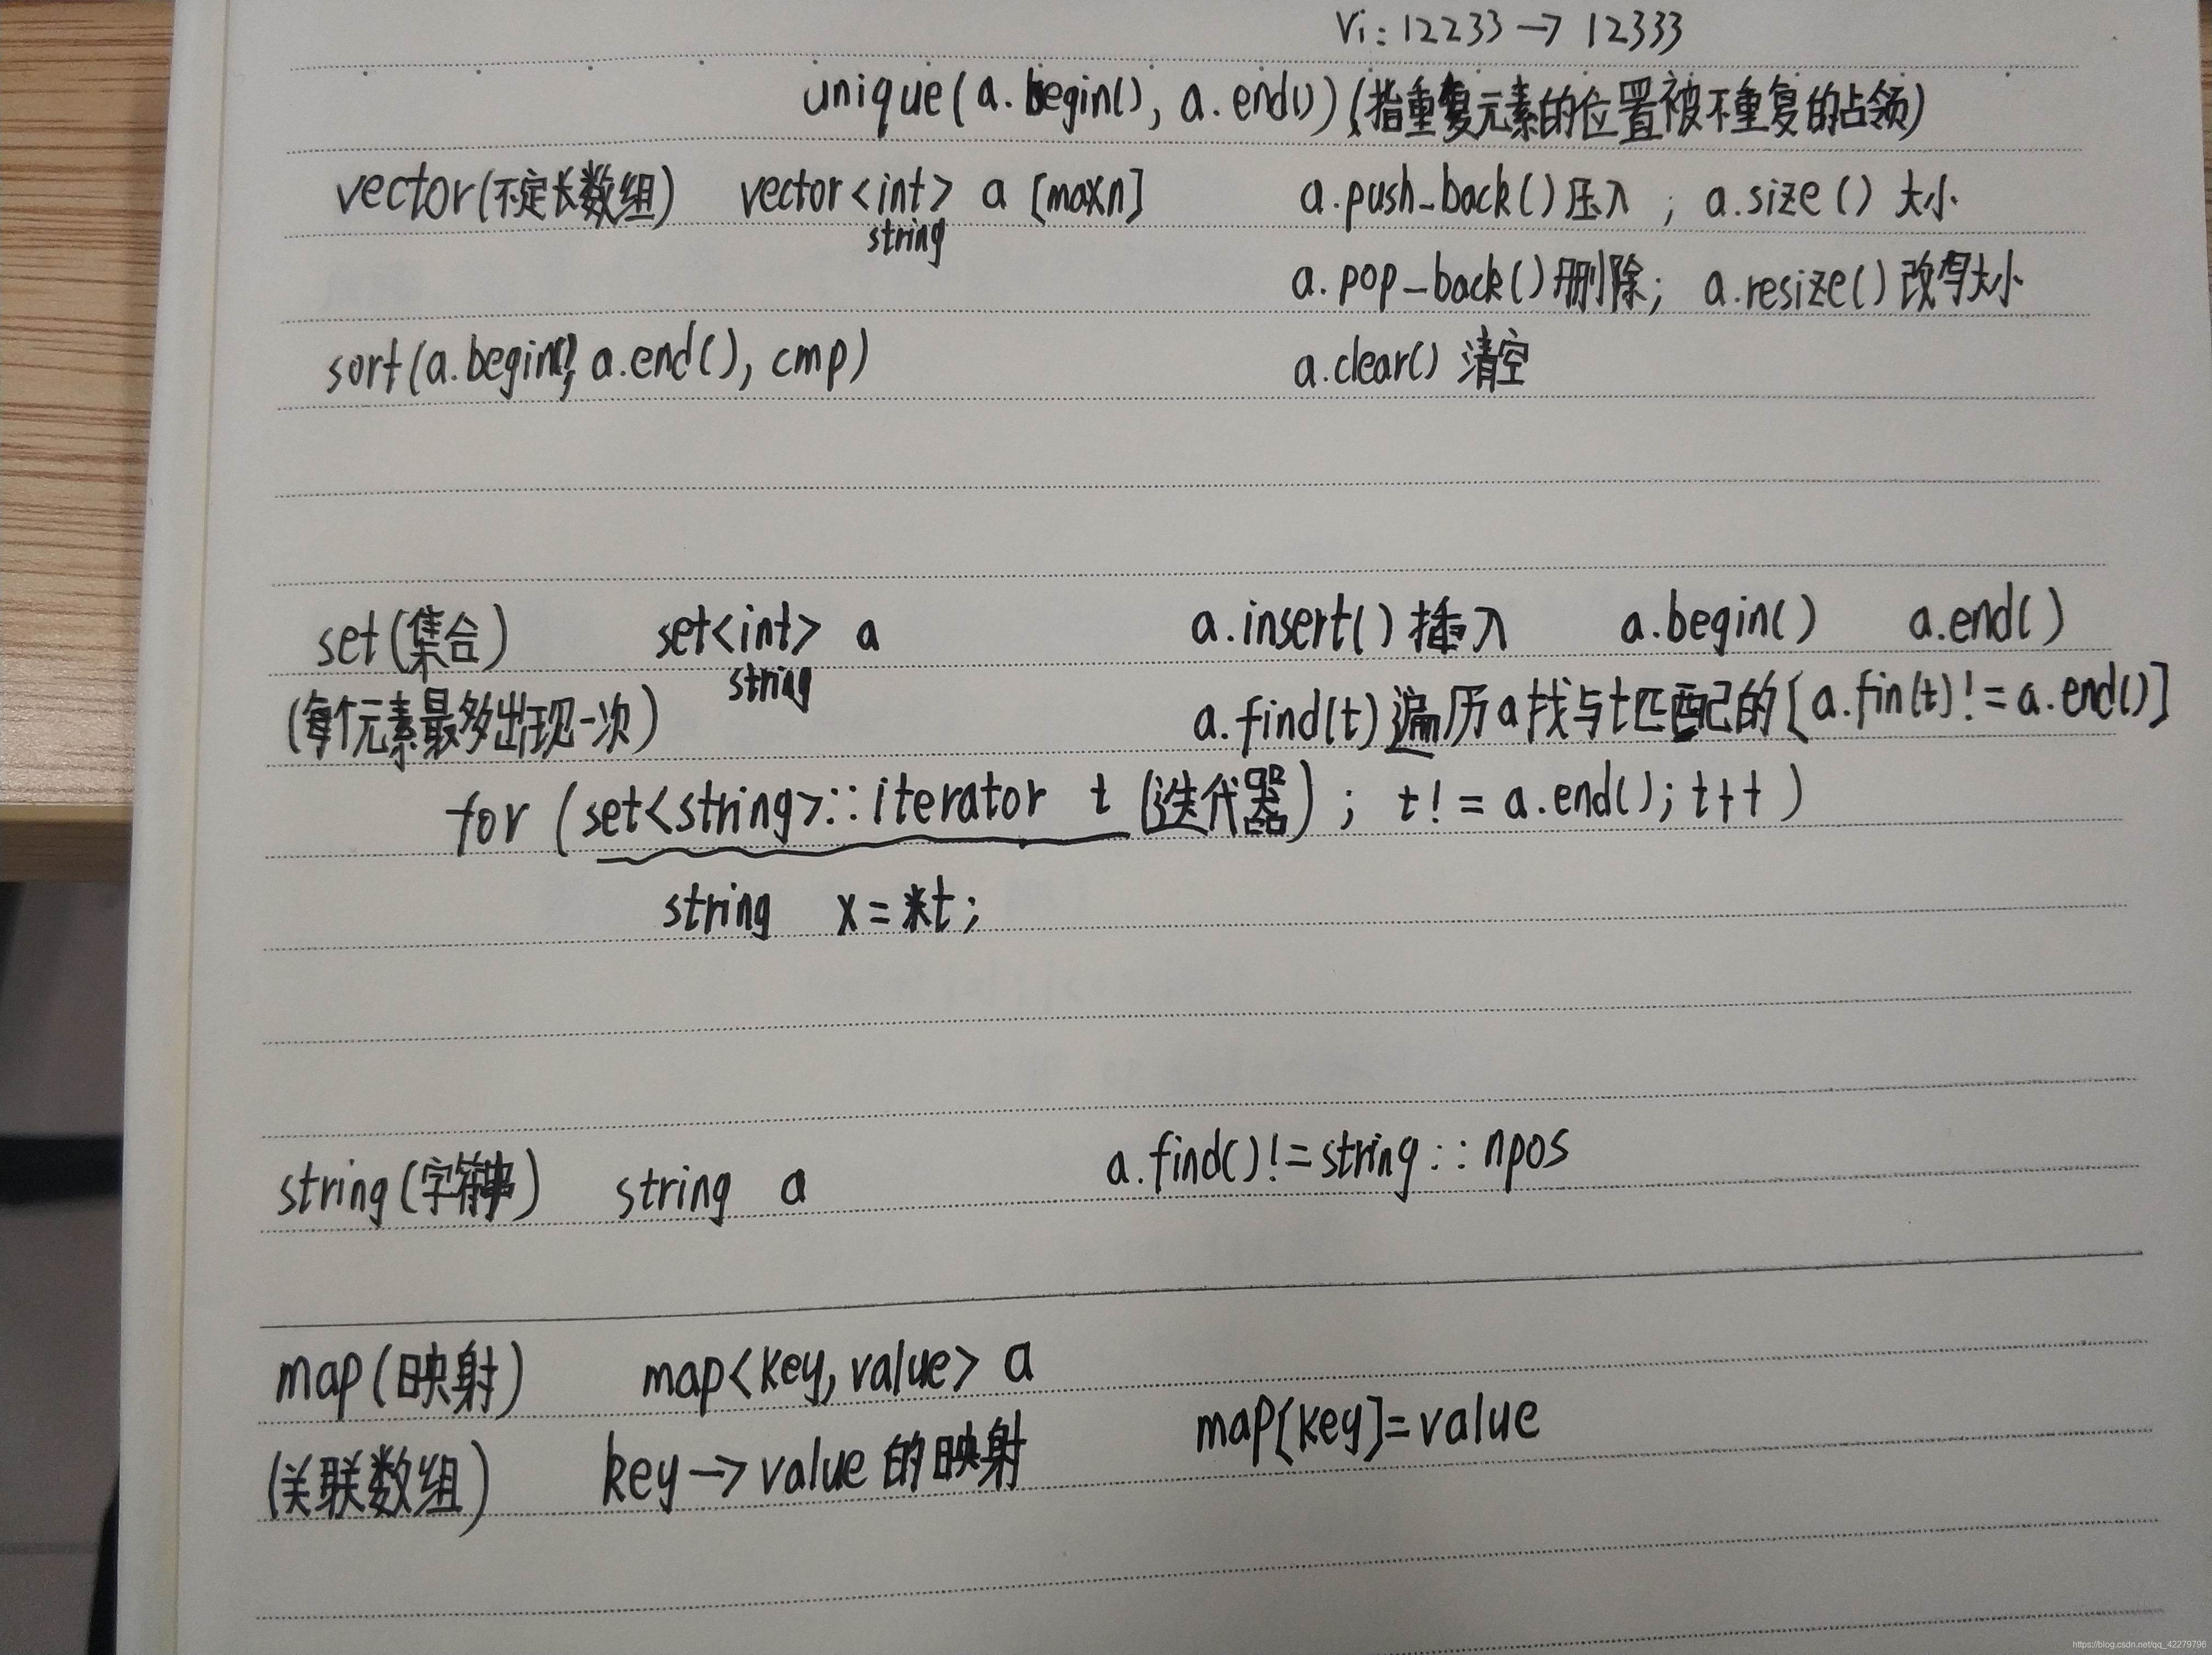 Vi: 12233 → 12333
unique(a.begin(), a.end()) (指重复元素的位置被不重复的占领)
vector(不定长数组) vector<int> a [maxn] a.push_back()压入 ; a.size() 大小
string
a.pop_back()删除; a.resize()改写大小
sort(a.begin(), a.end(), cmp) a.clear() 清空
set(集合) set<int> a a.insert()插入 a.begin() a.end()
string
(每个元素最多出现一次) a.find(t)遍历a找与t匹配的[a.fin(t)!=a.end()]
for (set<string>::iterator t (迭代器) ; t!=a.end(); t++)
string x=*t;
string(字符串) string a a.find()!=string::npos
map(映射) map<key,value> a
(关联数组) key→value的映射 map[key]=value
https://blog.csdn.net/qq_42279796